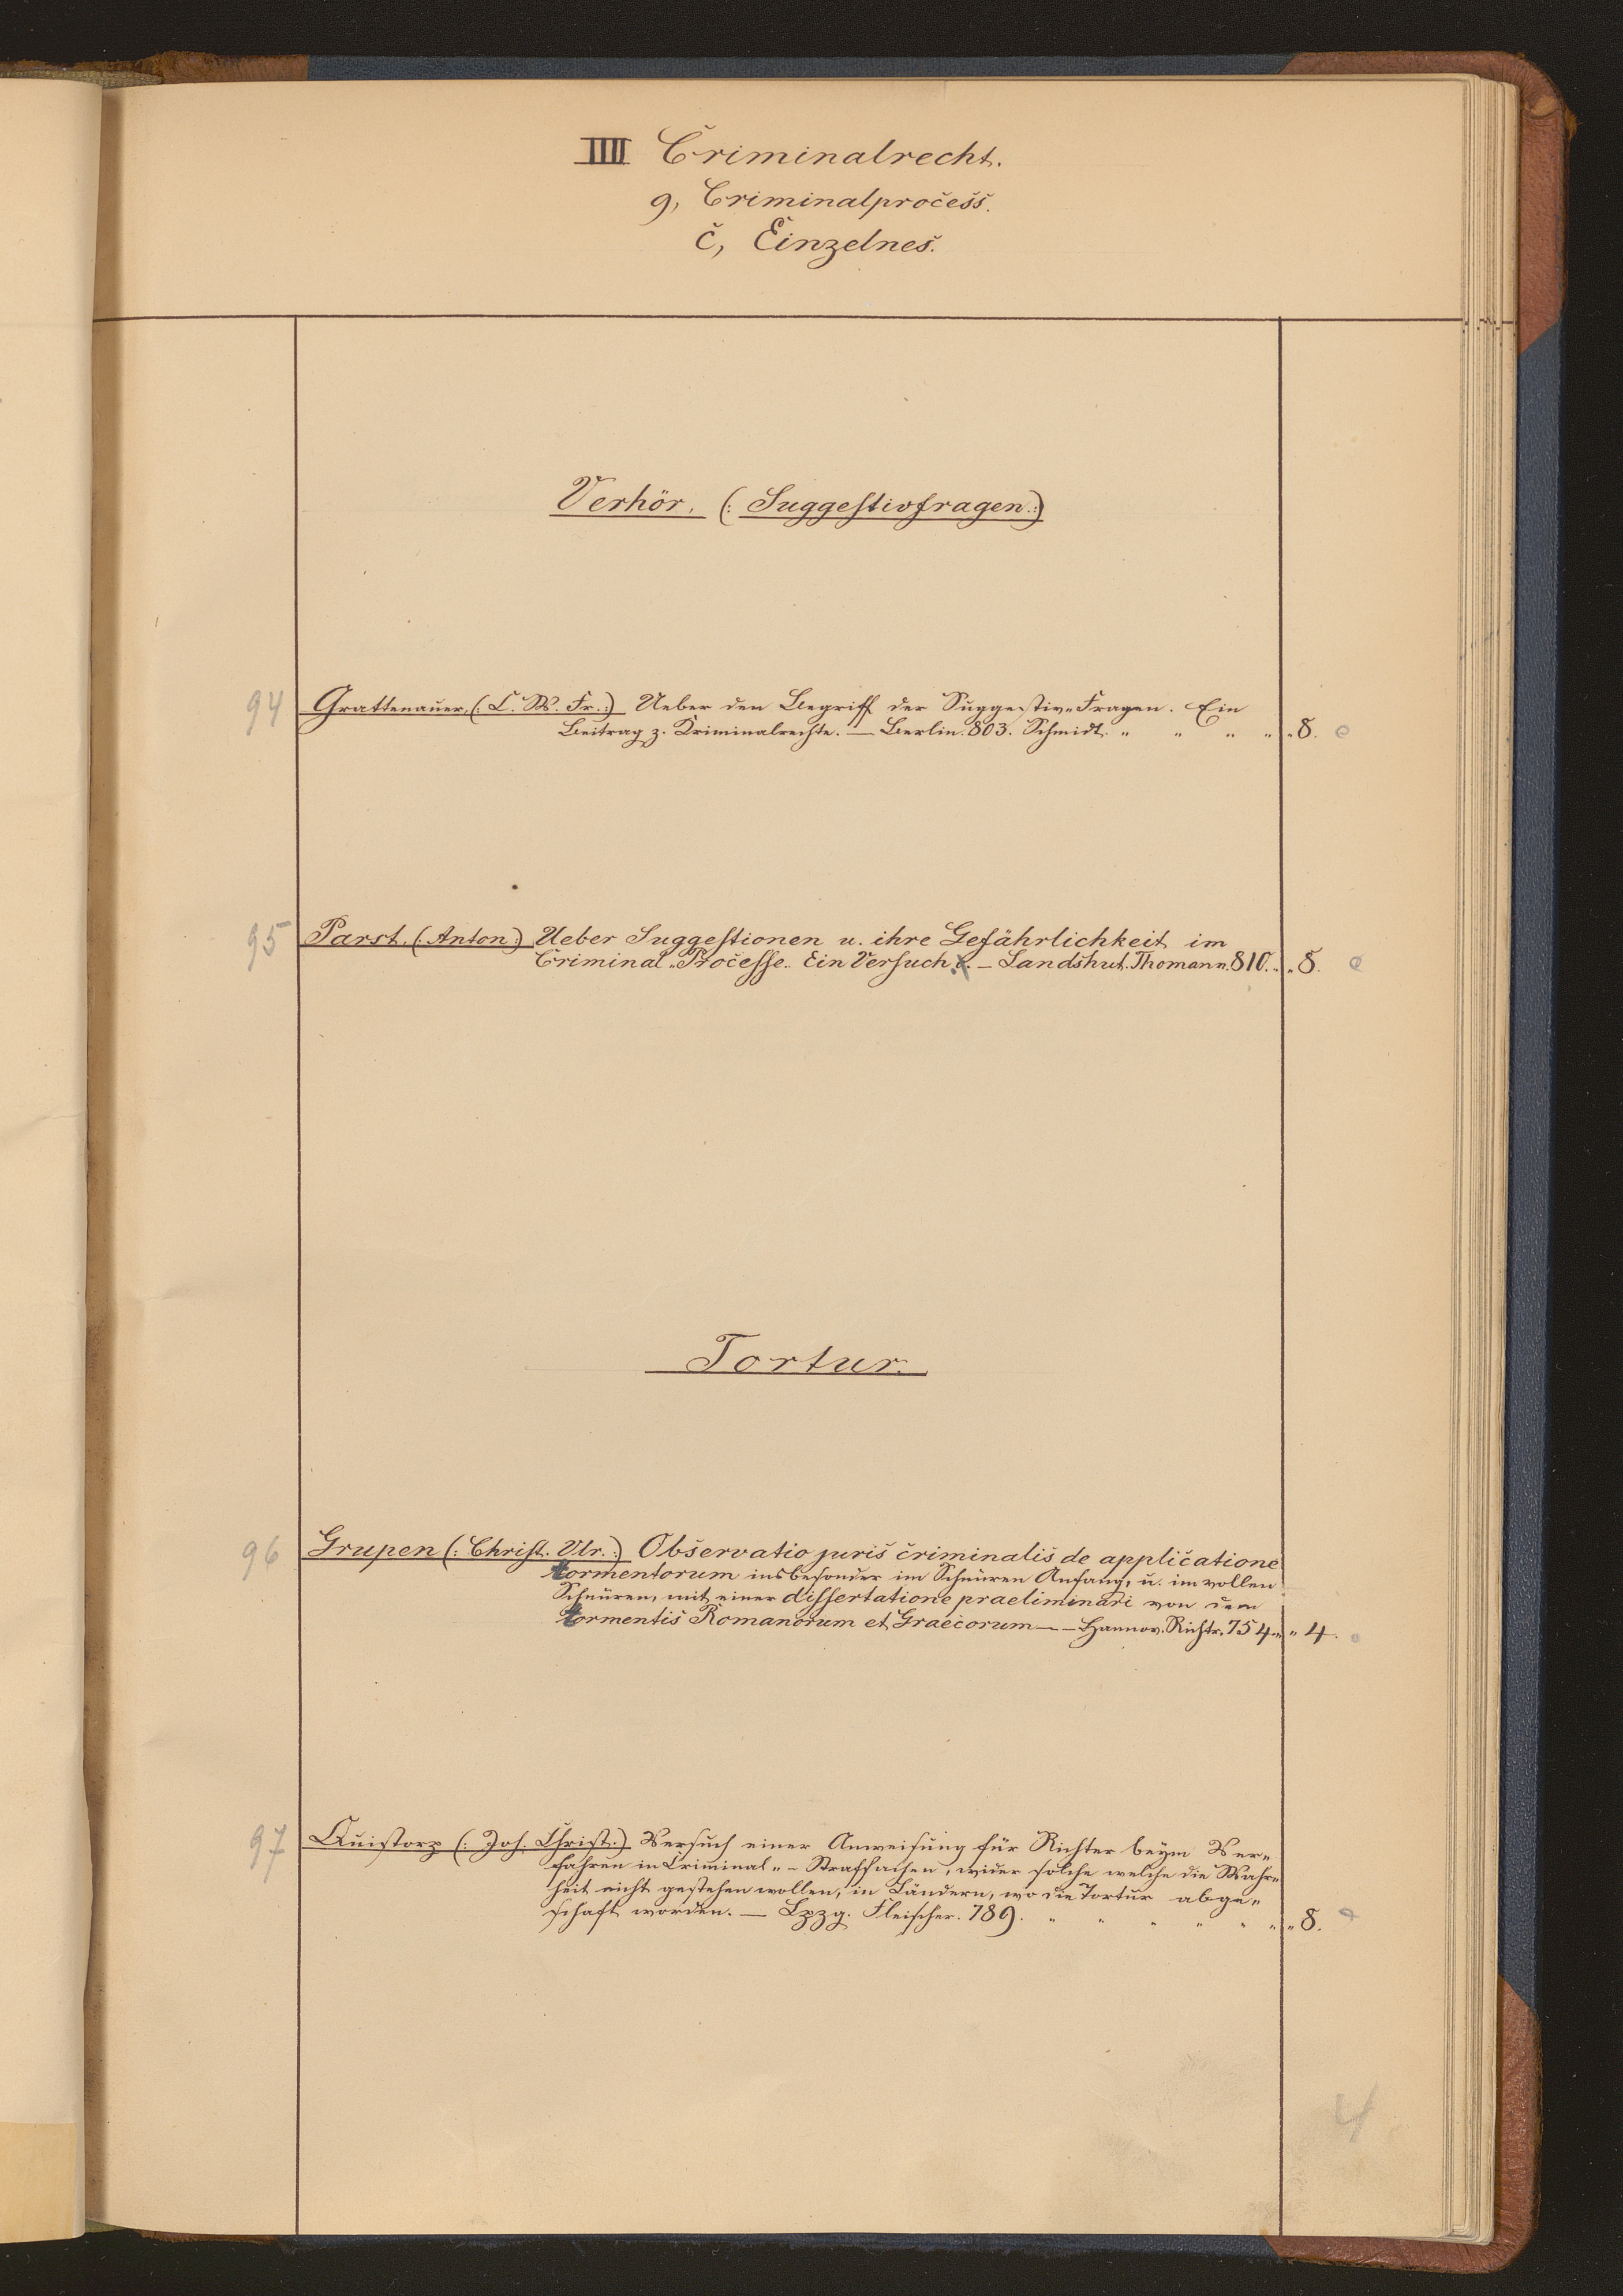 IIII Criminalrecht.
g, Criminalprocess.
c, Einzelnes.
Verhör. (: Suggestivfragen :)
94 Grattenauer, (: C. W. Fr. :) Ueber den Begriff der Suggestiv-Fragen. Ein
Beitrag z. Kriminalrechte. — Berlin. 803. Schmidt. " " " " " 8.
95 Parst. (: Anton :) Ueber Suggestionen u. ihre Gefährlichkeit im
Criminal-Processe. Ein Versuch. — Landshut. Thomann. 810. " " 8.
Tortur.
96 Grupen (: Christ. Ulr. :) Observatio juris criminalis de applicatione
tormentorum insbesonder im Schnüren Anfang, u. im vollen
Schnüren, mit einer dissertatione praeliminari von dem
tormentis Romanorum et Graecorum — — Hannov. Richtr. 754. " " 4.
97 Quistorp (: Joh. Christ. :) Versuch einer Anweisung für Richter beym Ver-
fahren in Criminal- – Strafsachen, wider solche welche die Wahr-
heit nicht gestehen wollen, in Ländern, wo die Tortur abge-
schaft worden. — Lpzg. Fleischer. 789. " " " " " " " 8.
4